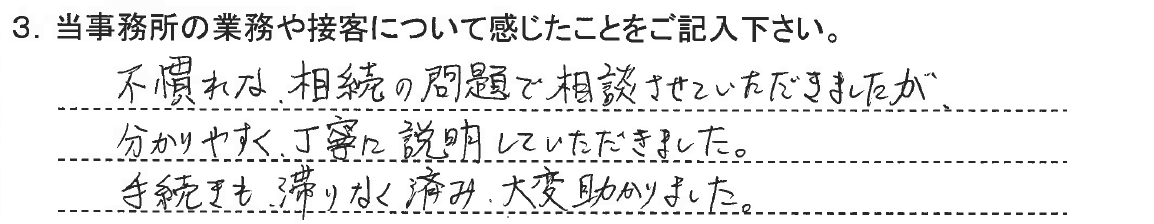 3. 当事務所の業務や接客について感じたことをご記入下さい。
不慣れな、相続の問題で相談させていただきましたが、
分かりやすく、丁寧に説明していただきました。
手続きも、滞りなく済み、大変助かりました。